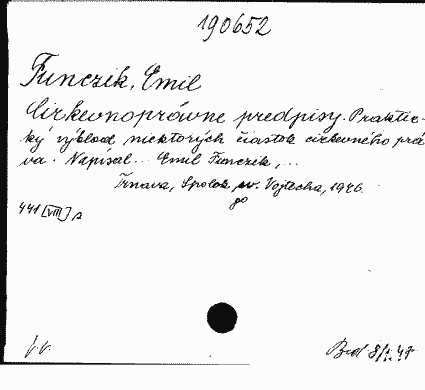 190652
Funczik, Emil
Cirkevnoprávne predpisy. Praktic-
ký výklad niektorých čiastok cirkevného prá-
va. Napísal... Emil Funczik,...
Trnava, Spolok sv. Vojtecha, 1946.
441 [VIII] s